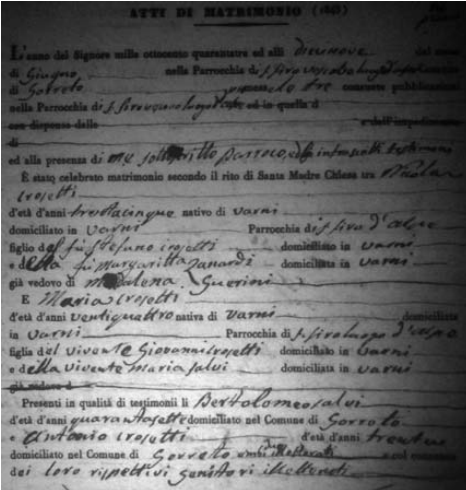 ATTI DI MATRIMONIO (1843)
L'anno del Signore mille ottocento quarantatre ed alli diecinove del mese
di Giugno nella Parrocchia di S. Siro
di Gorreto tre consuete pubblicazioni
nella Parrocchia di S. Siro ed in quella d
con dispensa dalle e dall'impedimento
di
ed alla presenza di me sottoscritto Parroco, ed infrascritti testimoni
È stato celebrato matrimonio secondo il rito di Santa Madre Chiesa tra Nicola
Crosetti
d'età d'anni trentacinque nativo di Varni
domiciliato in Varni Parrocchia di S. Siro
figlio del fù Stefano Crosetti domiciliato in Varni
e della fù Margaritta Zanardi domiciliata in Varni
già vedovo di Madalena Guerini
E Maria Crosetti
d'età d'anni ventiquattro nativa di Varni domiciliata
in Varni Parrocchia di S. Siro
figlia del vivente Giovanni Crosetti domiciliato in Varni
e della vivente Maria Salvi domiciliata in Varni
già vedova d
Presenti in qualità di testimonii li Bertolomeo Salvi
d'età d'anni quarantasette domiciliato nel Comune di Gorreto
e Antonio Crosetti d'età d'anni
domiciliato nel Comune di Gorreto e col consenso
dei loro rispettivi genitori illetterati